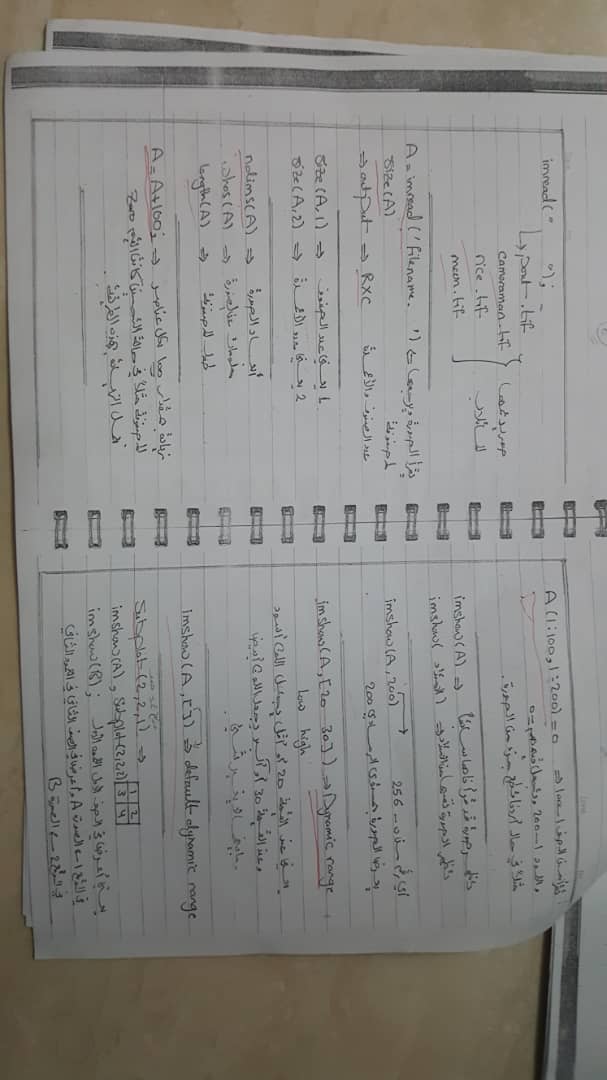 imread(" ");
pout.tif
cameraman.tif
rice.tif
moon.tif
A = imread('filename. ') ⇐ يقرأ الصورة
لمصفوفة
size(A)
⇒ output ⇒ RXC عدد الصفوف والأعمدة
size(A,1) ⇒ 1 يعني عدد الصفوف
size(A,2) ⇒ 2 يعني عدد الأعمدة
ndims(A) ⇒ أبعاد الصورة
whos(A) ⇒ معلومات عن الصورة
length(A) ⇒ طول المصفوفة
A = A+100; ⇒ زيادة مقدار لكل عناصر
المصفوفة مثلاً في حالة كانت القيم Zero
الزيادة بهذه الطريقة.
A(1:100,1:200)=0 ⇒ الصف 1→100
200→1 =0
مثلاً في حال أردنا قطع جزء من الصورة.
imshow(A) ⇒ صورة قد قرأناها سابقاً
imshow( ) ⇒ الصورة نفسها من
imshow(A,200) أي رقم 256
يعرض الصورة بمستوى الرمادي 200
imshow(A,[20 30]) ⇒ Dynamic range
Low high
يعني عند القيمة 20 أو أقل يجعل اللون أسود
وعند القيمة 30 أو أكبر يجعل اللون أبيض
ما بينهما لا يغير شيء.
imshow(A,[]) ⇒ default dynamic range
Subplot(2,2,1) ⇒
1 2
3 4
imshow(A), Subplot(2,2,2)
imshow(B); يعني أعرض في الصف الأول العمود الأول
في الموقع 1 الصورة A وأعرض في الصف الثاني في العمود الثاني
في الموقع 2 الصورة B